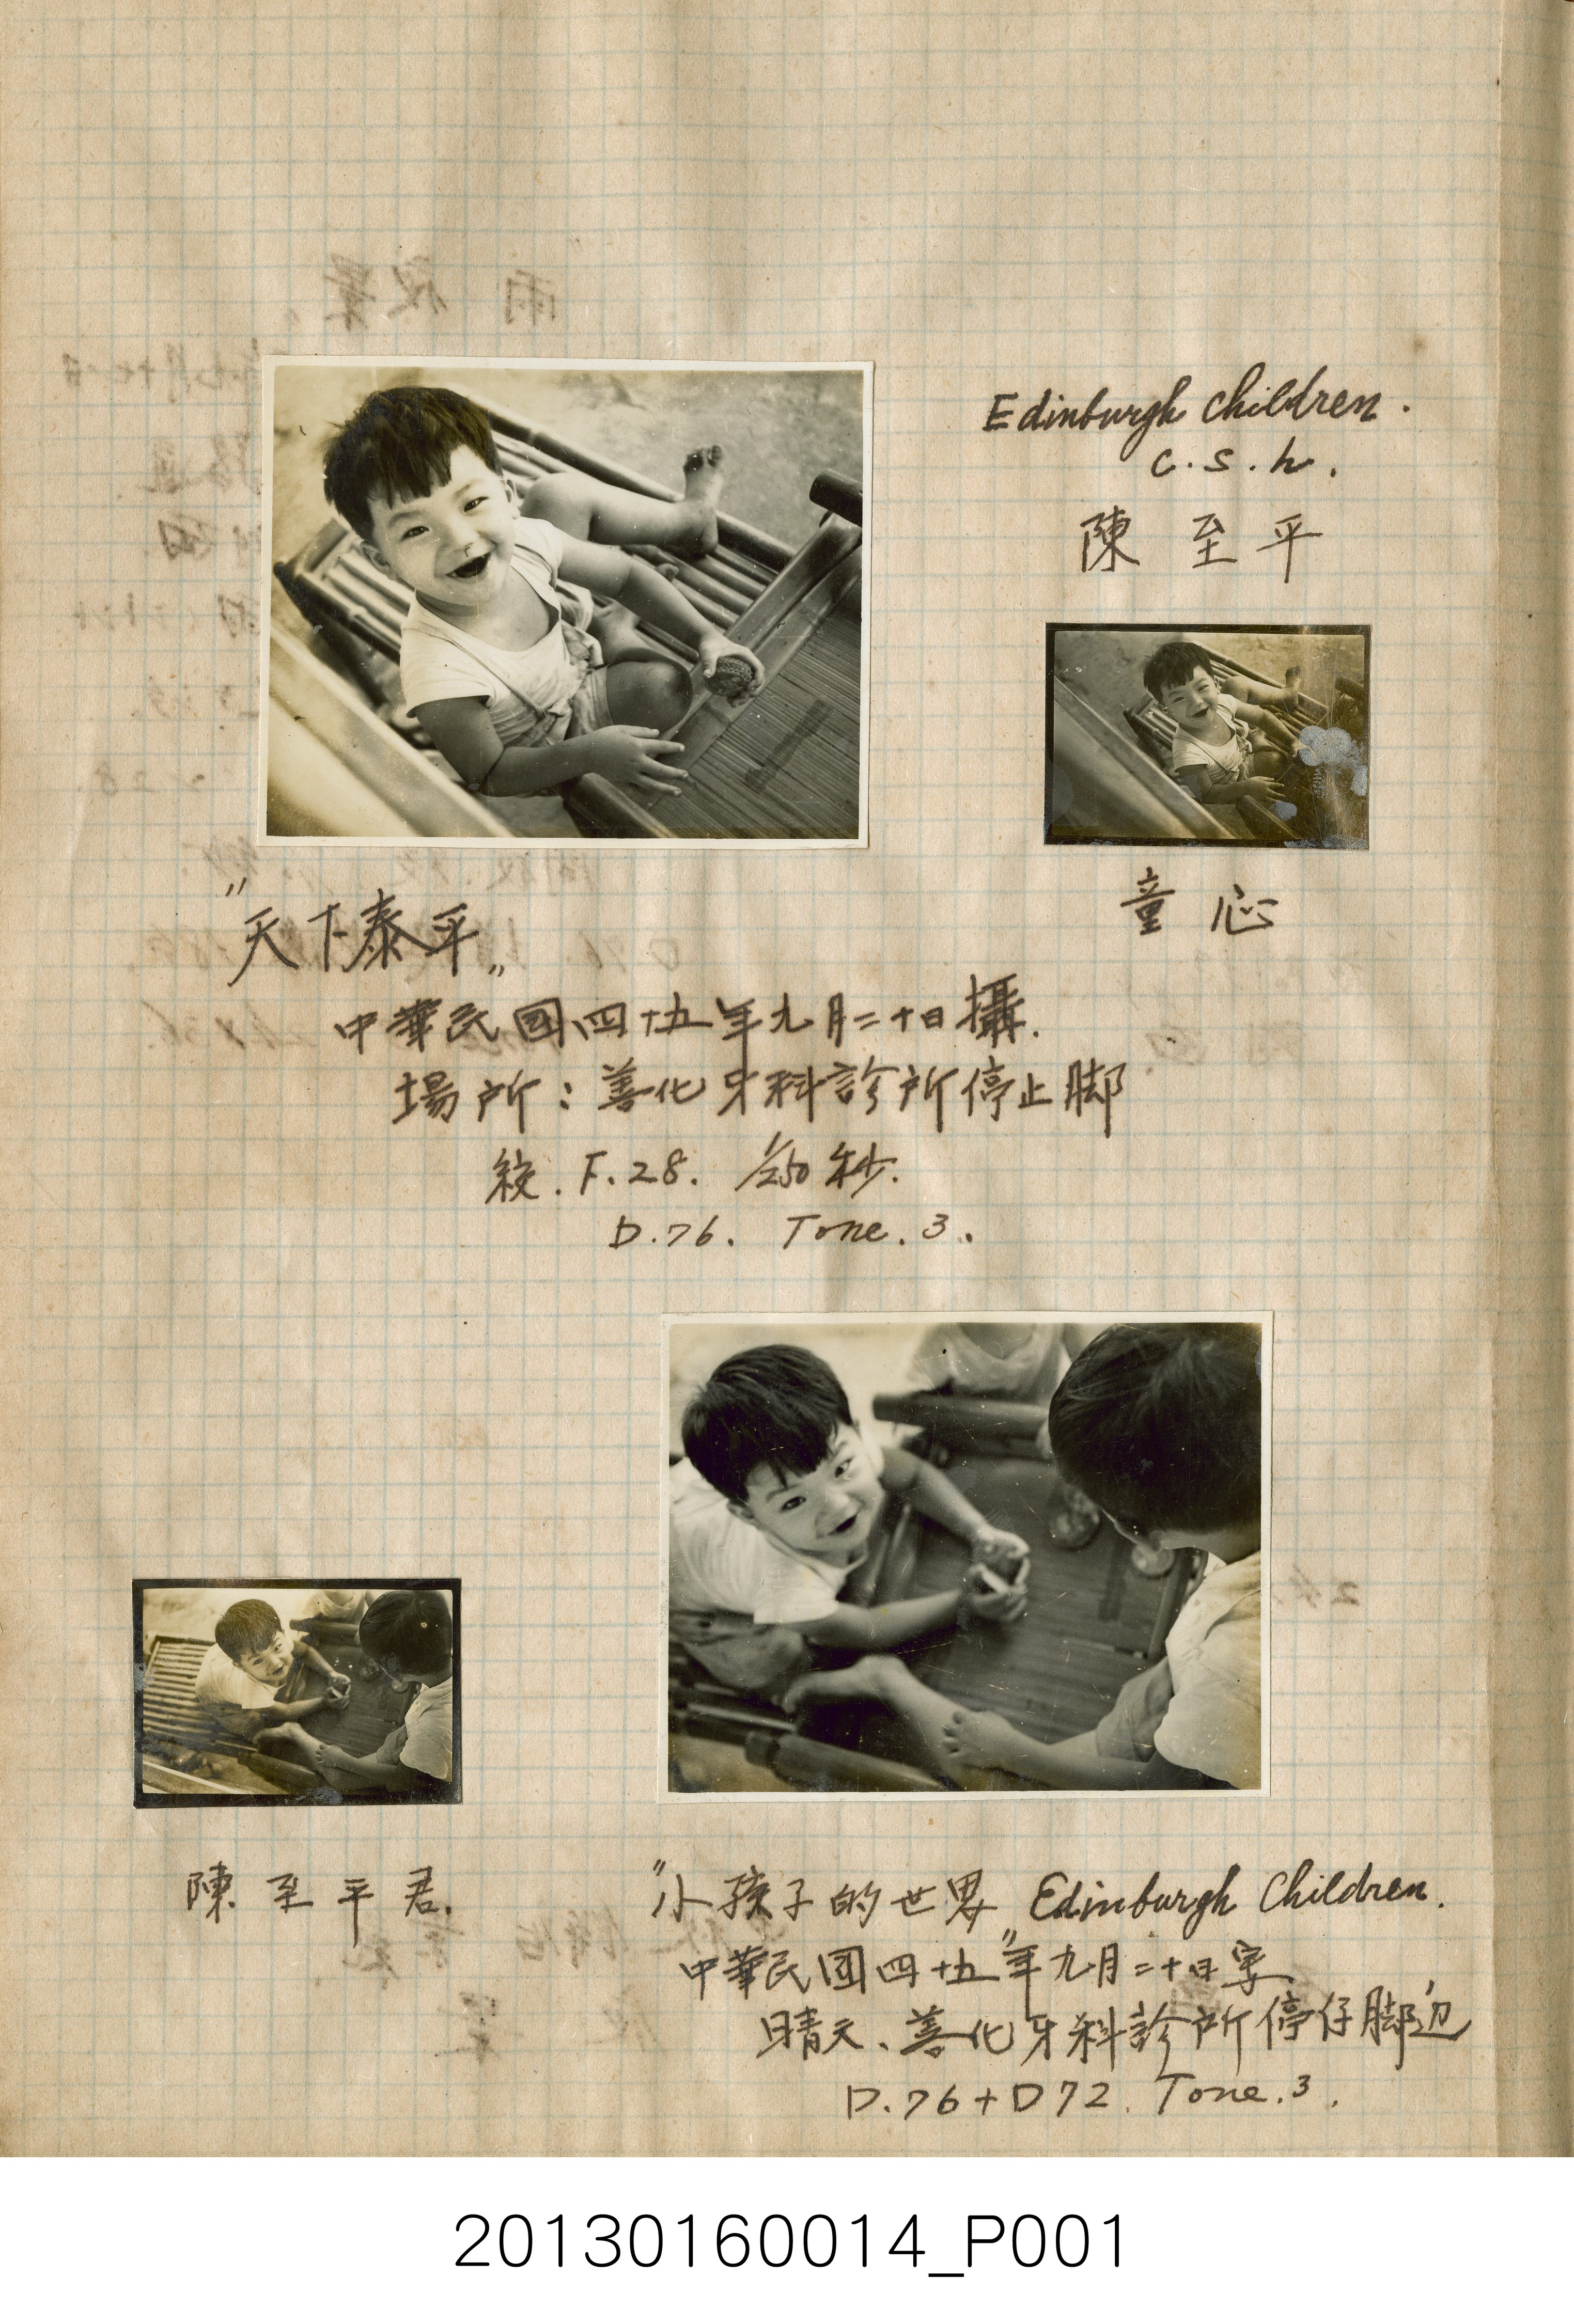 Edinburgh Children.
C.S.h.
陳至平
童心
"天下泰平"
中華民國四十五年九月二十日攝.
場所:善化牙科診所停止脚
絞.F.28. 1/250秒.
D.76. Tone.3.
陳至平君.
"小孩子的世界" Edinburgh Children.
中華民國四十五年九月二十日寫
晴天、善化牙科診所停仔脚边
D.76+D72. Tone.3.
20130160014_P001